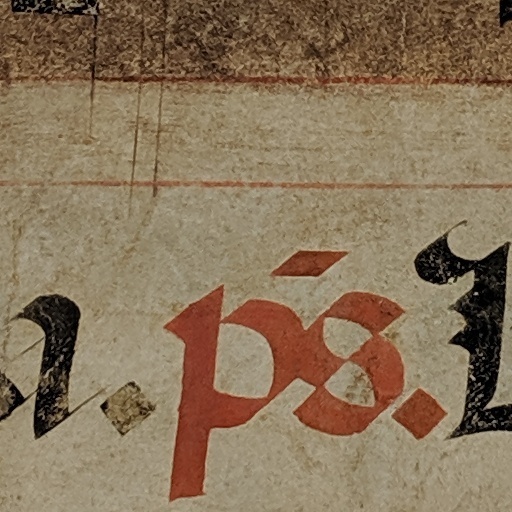 a. p̄s. L